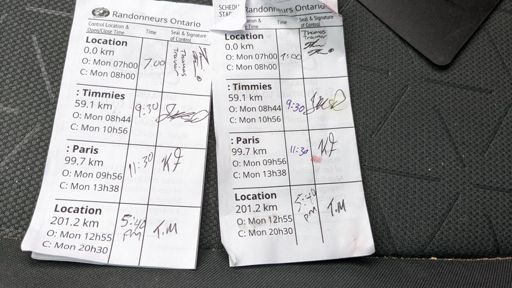 Randonneurs Ontario
Control Location &
Open/Close Time
Time
Seal & Signature
of Control
Location
0.0 km
O: Mon 07h00
C: Mon 08h00
7:00
Thomas
: Timmies
59.1 km
O: Mon 08h44
C: Mon 10h56
9:30
: Paris
99.7 km
O: Mon 09h56
C: Mon 13h38
11:30
KJ
Location
201.2 km
O: Mon 12h55
C: Mon 20h30
5:40
pm
T.M
SCHEDU
STAR
Randonneurs Ontario
Location &
Time
Time
Seal & Signature
of Control
Location
0.0 km
O: Mon 07h00
C: Mon 08h00
7:00
Thomas
: Timmies
59.1 km
O: Mon 08h44
C: Mon 10h56
9:30
: Paris
99.7 km
O: Mon 09h56
C: Mon 13h38
11:30
KJ
Location
201.2 km
O: Mon 12h55
C: Mon 20h30
5:40
pm
T.M